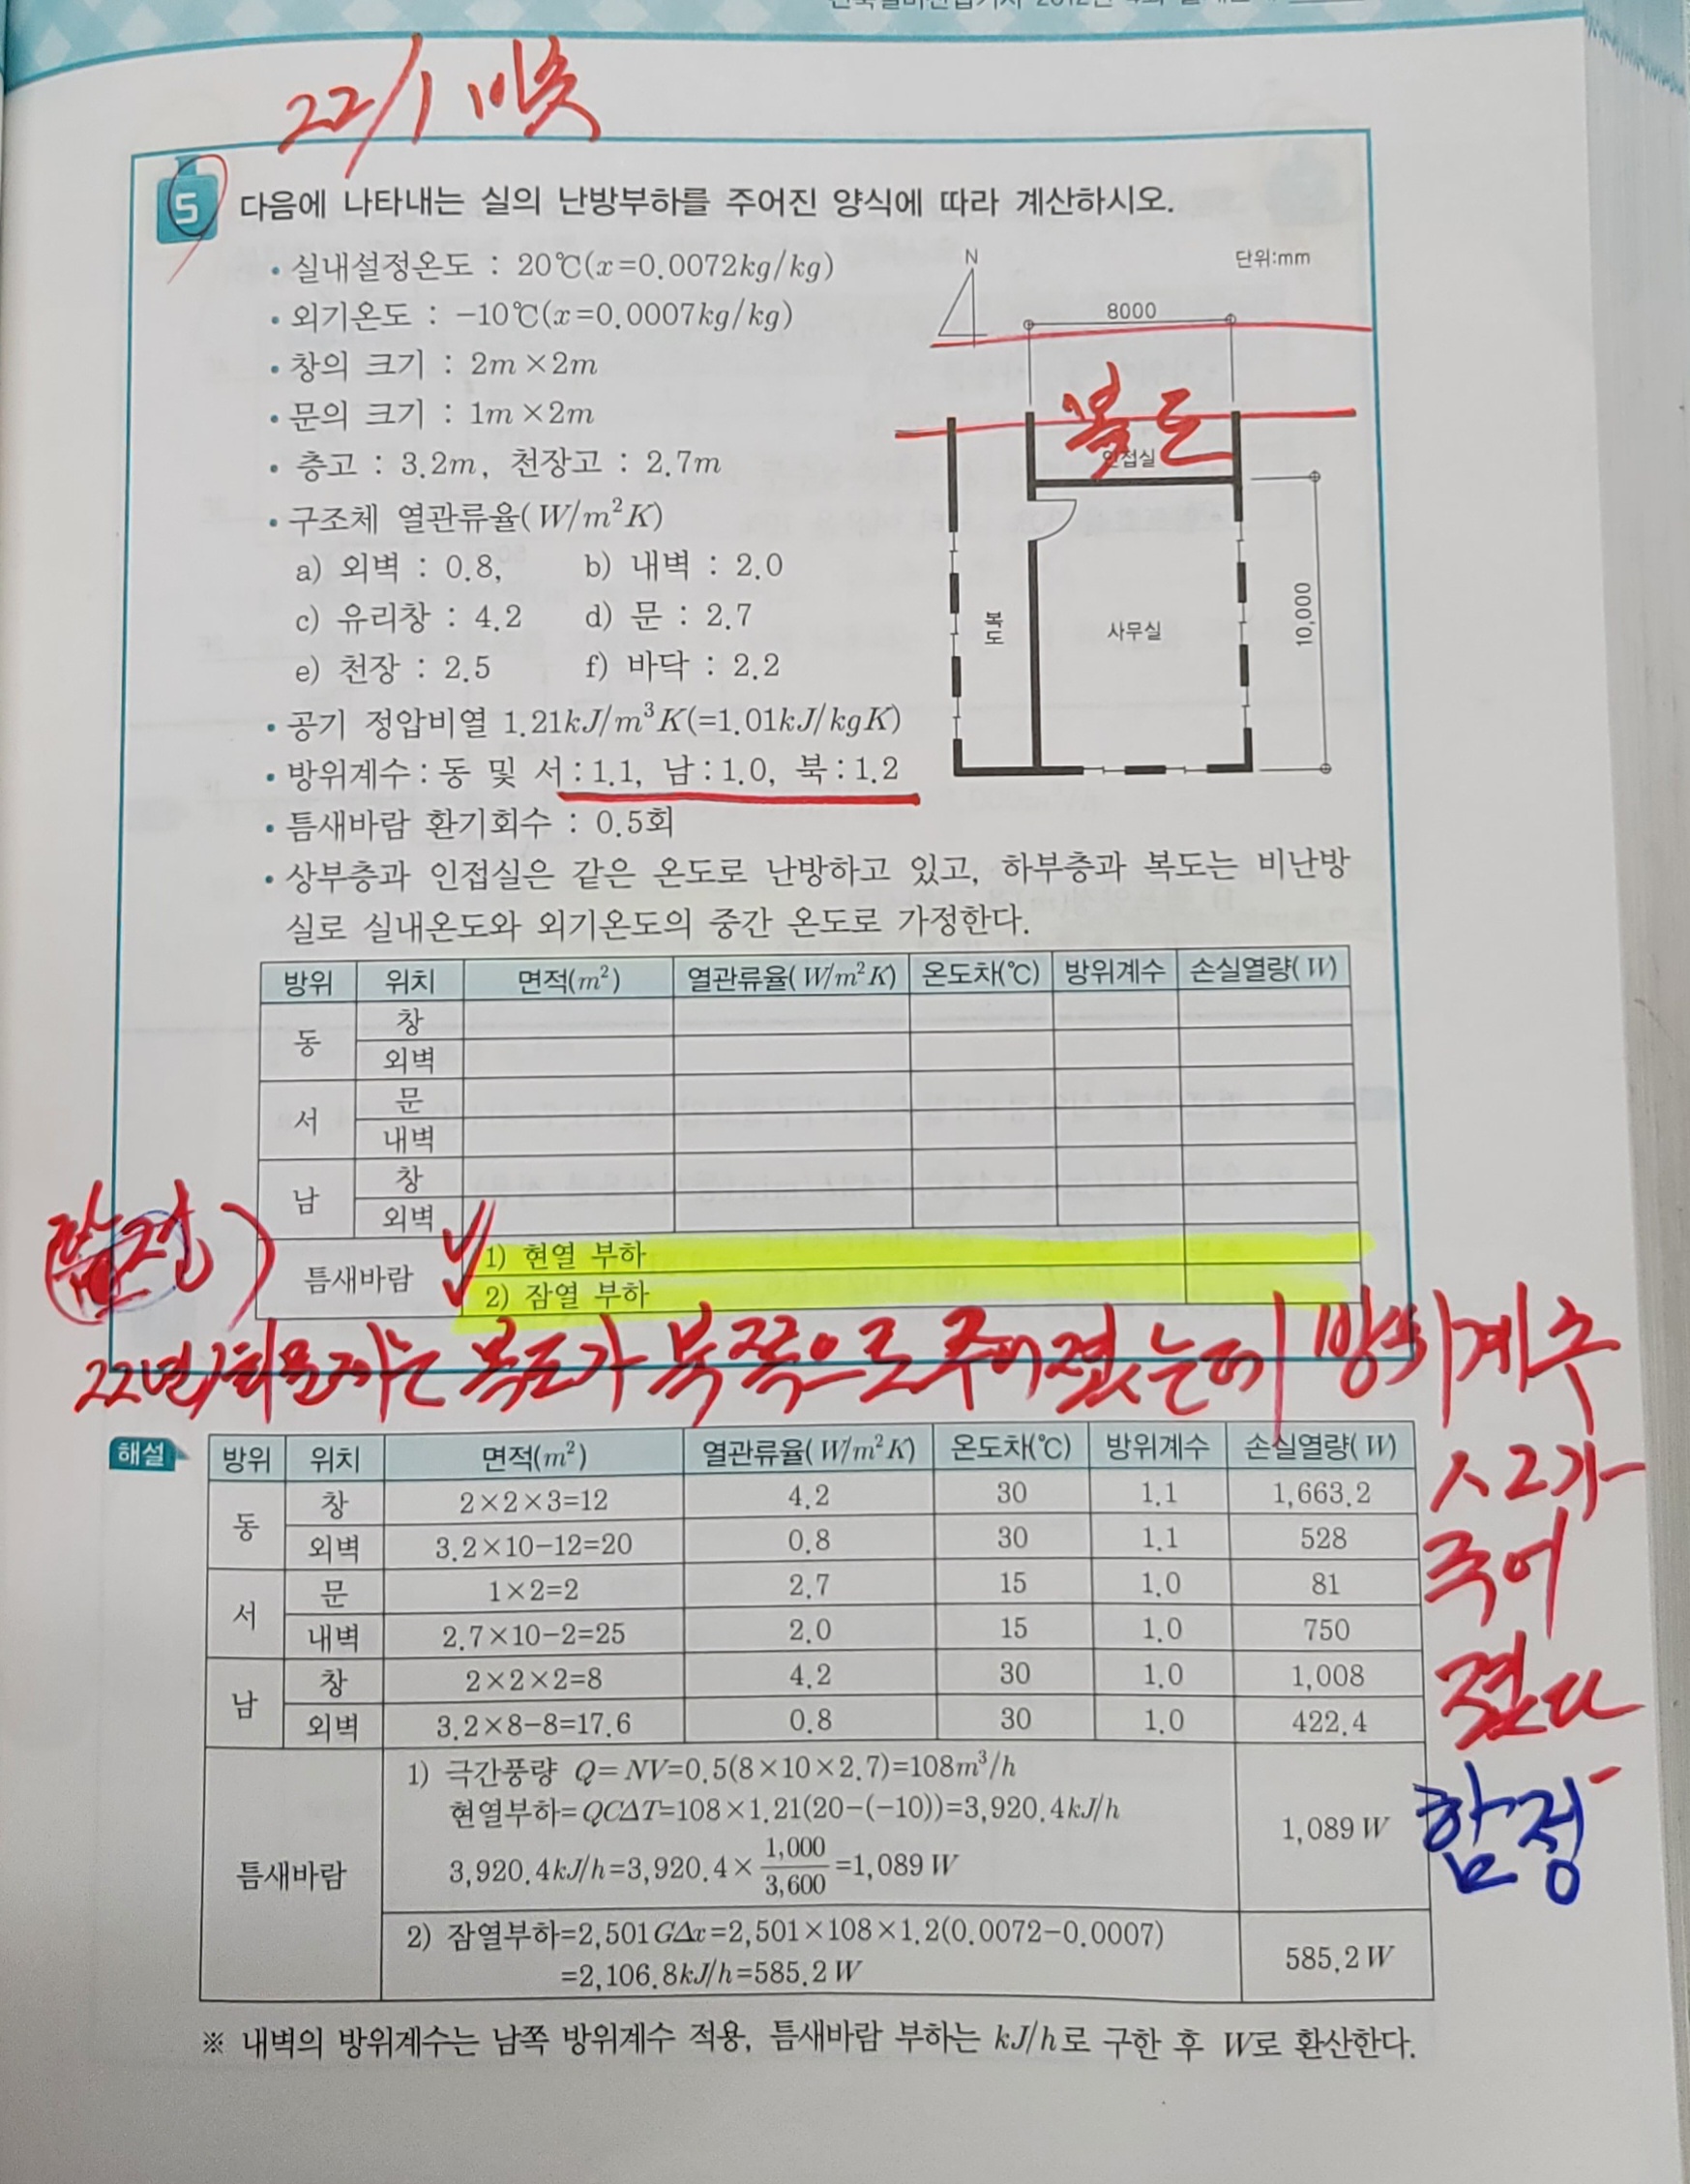 22/1 기출
5 다음에 나타내는 실의 난방부하를 주어진 양식에 따라 계산하시오.
• 실내설정온도 : 20℃(x=0.0072kg/kg)
• 외기온도 : -10℃(x=0.0007kg/kg)
• 창의 크기 : 2m×2m
• 문의 크기 : 1m×2m
• 층고 : 3.2m, 천장고 : 2.7m
• 구조체 열관류율(W/m²K)
a) 외벽 : 0.8, b) 내벽 : 2.0
c) 유리창 : 4.2 d) 문 : 2.7
e) 천장 : 2.5 f) 바닥 : 2.2
• 공기 정압비열 1.21kJ/m³K(=1.01kJ/kgK)
• 방위계수 : 동 및 서 : 1.1, 남 : 1.0, 북 : 1.2
• 틈새바람 환기회수 : 0.5회
• 상부층과 인접실은 같은 온도로 난방하고 있고, 하부층과 복도는 비난방
실로 실내온도와 외기온도의 중간 온도로 가정한다.
N
단위:mm
8000
복도
인접실
복도
사무실
10,000
방위 위치 면적(m²) 열관류율(W/m²K) 온도차(℃) 방위계수 손실열량(W)
동 창
외벽
서 문
내벽
남 창
외벽
틈새바람 1) 현열 부하
2) 잠열 부하
함정
22년 1회 문제는 복도가 북쪽으로 주어졌는데 방위계수
1.2가
주어
졌다
함정
해설
방위 위치 면적(m²) 열관류율(W/m²K) 온도차(℃) 방위계수 손실열량(W)
동 창 2×2×3=12 4.2 30 1.1 1,663.2
외벽 3.2×10-12=20 0.8 30 1.1 528
서 문 1×2=2 2.7 15 1.0 81
내벽 2.7×10-2=25 2.0 15 1.0 750
남 창 2×2×2=8 4.2 30 1.0 1,008
외벽 3.2×8-8=17.6 0.8 30 1.0 422.4
틈새바람
1) 극간풍량 Q=NV=0.5(8×10×2.7)=108m³/h
현열부하=QCΔT=108×1.21(20-(-10))=3,920.4kJ/h
3,920.4kJ/h=3,920.4×1,000/3,600=1,089W
1,089W
2) 잠열부하=2,501GΔx=2,501×108×1.2(0.0072-0.0007)
=2,106.8kJ/h=585.2W
585.2W
※ 내벽의 방위계수는 남쪽 방위계수 적용, 틈새바람 부하는 kJ/h로 구한 후 W로 환산한다.